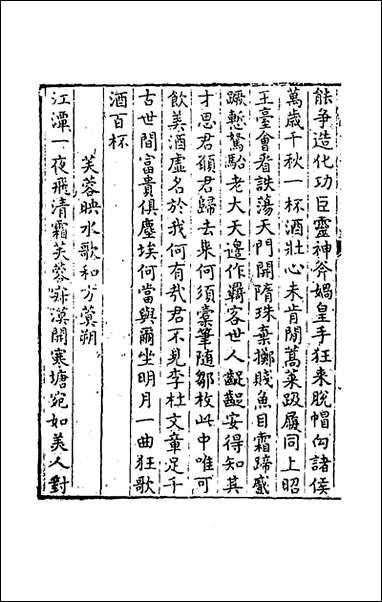 能争造化功臣靈神斧媧皇手狂来脱帽向諸侯
萬歳千秋一杯酒壮心未肯閒蒿萊趿屨同上昭
王臺會看詄蕩天門開隋珠棄擲賤魚目霜蹄蹙
蹶慙駑駘老大天邊作羇客世人齪齪安得知其
才思君顧君歸去來何須橐筆随鄒枚此中唯可
飲美酒虚名於我何有㢤君不見李杜文章足千
古世間富貴俱塵埃何當與爾坐明月一曲狂歌
酒百杯
芙蓉映水歌和方蓂朔
江潭一夜飛清霜芙蓉寂漠開寒塘宛如美人對